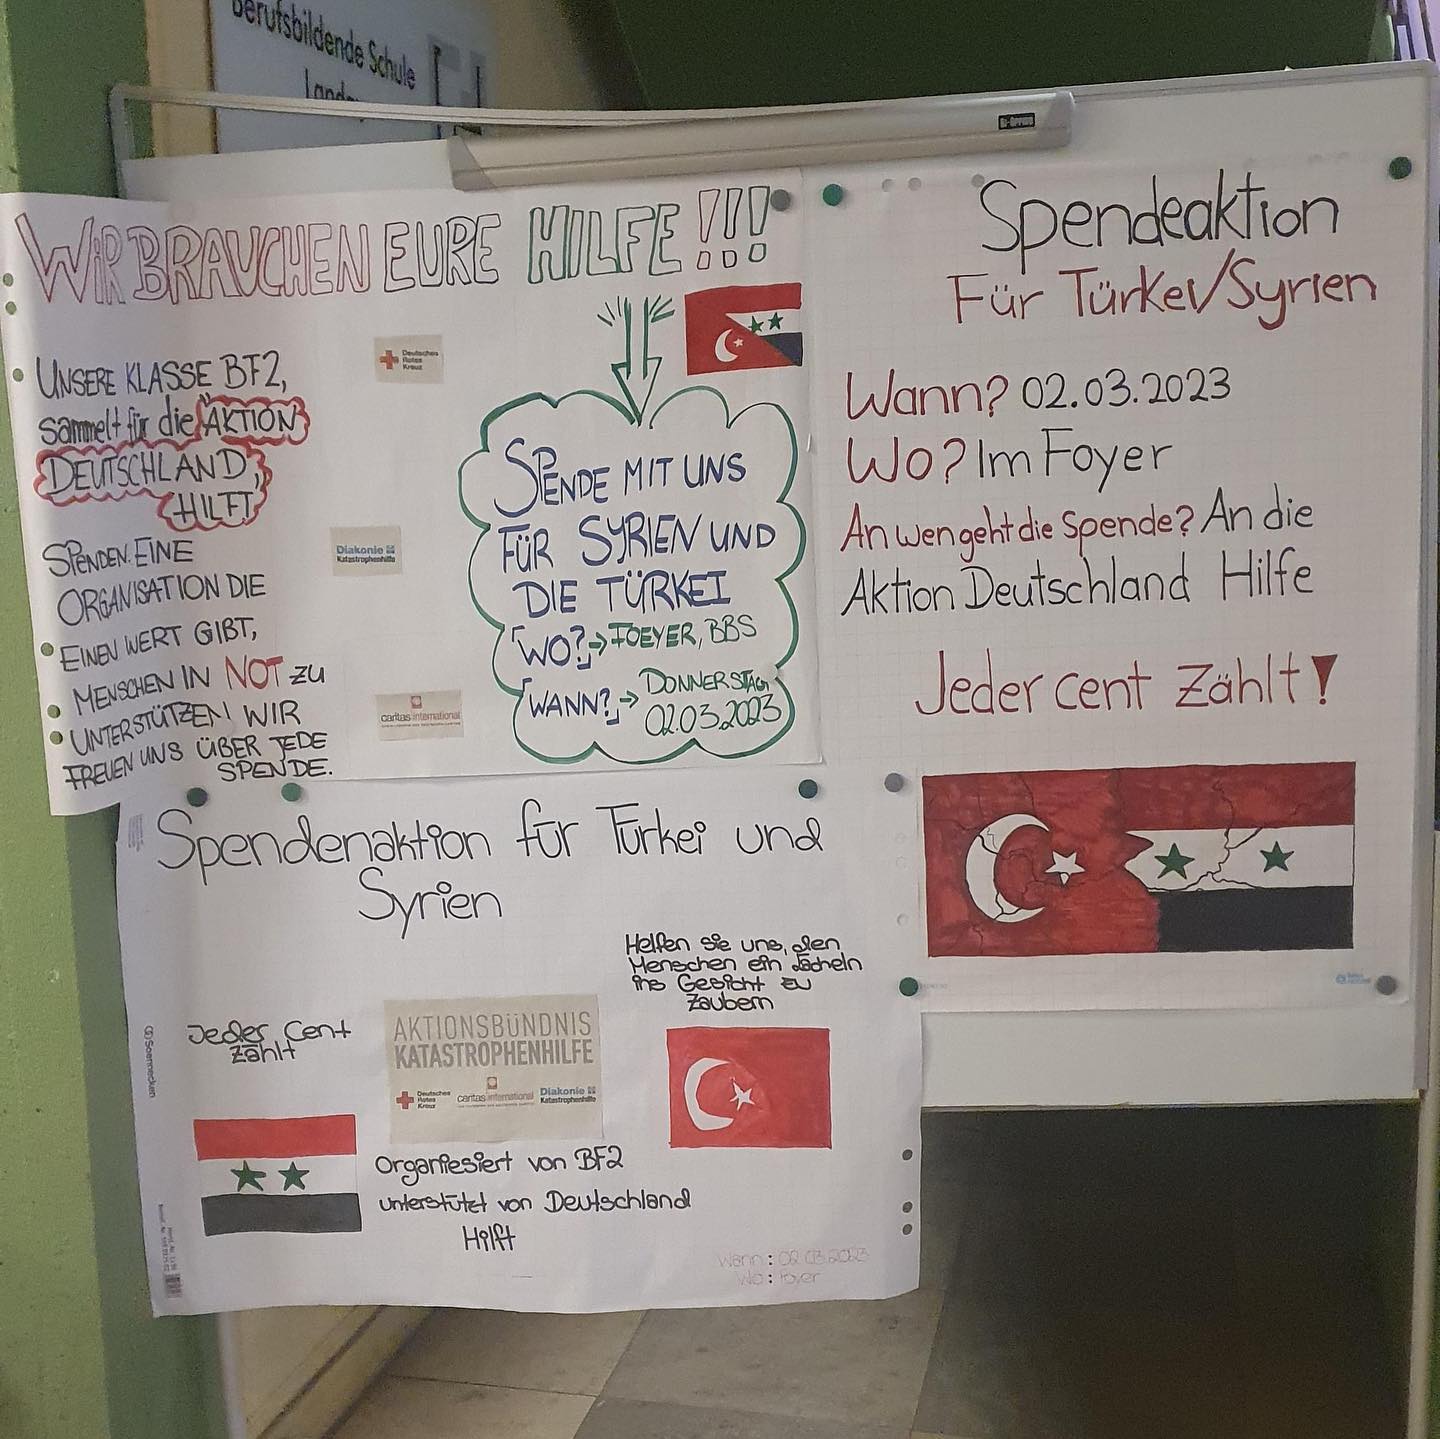 Berufsbildende Schule
WIR BRAUCHEN EURE HILFE!!!
UNSERE KLASSE BF2,
sammelt für die AKTION
DEUTSCHLAND,
HILFT
SPENDEN. EINE
ORGANISATION DIE
EINEN WERT GIBT,
MENSCHEN IN NOT ZU
UNTERSTÜTZEN! WIR
FREUEN UNS ÜBER JEDE
SPENDE.
Deutsches
Rotes
Kreuz
Diakonie
Katastrophenhilfe
caritas international
SPENDE MIT UNS
FÜR SYRIEN UND
DIE TÜRKEI
WO? → FOEYER, BBS
WANN? → DONNERSTAG,
02.03.2023
Spendeaktion
Für Türkei/Syrien
Wann? 02.03.2023
Wo? Im Foyer
An wen geht die Spende? An die
Aktion Deutschland Hilfe
Jeder cent Zählt!
Spendenaktion für Türkei und
Syrien
Helfen sie uns, den
Menschen ein Lächeln
ins Gesicht zu
Zaubern
Jeder Cent
zählt
AKTIONSBÜNDNIS
KATASTROPHENHILFE
Deutsches
Rotes
Kreuz
caritas international
Diakonie
Katastrophenhilfe
Organiesiert von BF2
unterstützt von Deutschland
Hilft
Wann: 02.03.2023
Wo: Foyer
Soennecken